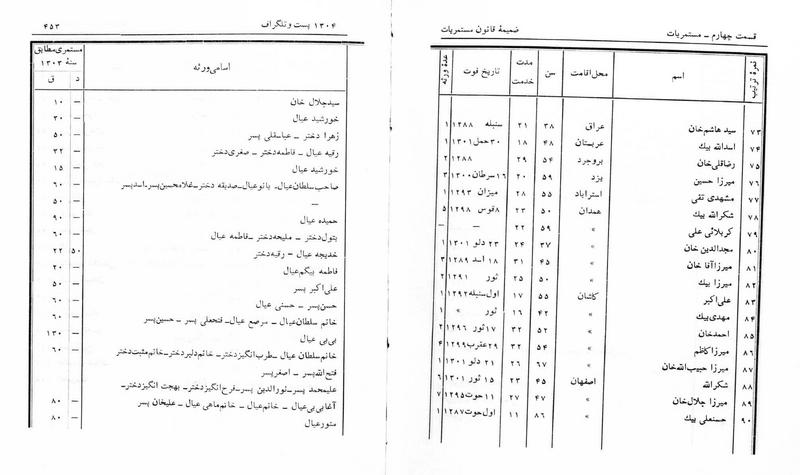 قسمت چهارم ـ مستمریات
ضمیمهٔ قانون مستمریات
نمرهٔ ترتیب
اسم
محل اقامت
سن
مدت خدمت
تاریخ فوت
عدهٔ ورثه
۷۳ سید هاشم‌خان عراق ۳۸ ۲۱ سنبله ۱۲۸۸ ۱
۷۴ اسدالله بیك عربستان ۴۸ ۱۸ ۳۰حمل۱۳۰۱ ۱
۷۵ رضاقلی‌خان بروجرد ۵۴ ۲۹ ۱۲۸۸ ۲
۷۶ میرزا حسین یزد ۵۹ ۲۰ ۱۶سرطان۱۳۰۰ ۳
۷۷ مشهدی تقی استراباد ۵۵ ۲۸ میزان ۱۲۹۳ ۱
۷۸ شکرالله بیك همدان ۵۰ ۲۳ ۸قوس ۱۲۹۸ ۵
۷۹ کربلائی علی » ۵۹ ۲۲ — —
۸۰ مجدالدین خان » ۳۷ ۲۴ ۲۳ دلو ۱۳۰۱ ۱
۸۱ میرزاآقا خان » ۴۵ ۳۱ ۱۸ اسد ۱۲۸۹ ۳
۸۲ میرزا بیك » ۵۰ ۲۵ ثور ۱۲۹۱ ۲
۸۳ علی‌اکبر کاشان ۵۵ ۱۷ اول‌سنبله۱۲۹۲ ۱
۸۴ مهدی‌بیك » ۴۲ ۱۶ ثور » ۱
۸۵ احمدخان » ۵۲ ۳۲ ۱۷ثور ۱۲۹۶ ۲
۸۶ میرزاکاظم » ۵۴ ۳۲ ۲۹عقرب۱۲۹۹ ۴
۸۷ میرزا حبیب‌الله‌خان » ۶۷ ۲۶ ۲۱ دلو ۱۳۰۱ ۱
۸۸ شکرالله اصفهان ۴۵ ۲۳ ۱۵ ثور ۱۳۰۱ ۶
۸۹ میرزا جلال‌خان » ۴۷ ۲۷ ۱۱حوت۱۲۹۵ ۷
۹۰ حسنعلی بیك » ۸۶ ۱۱ اول‌حوت۱۲۸۷ ۱
۱۳۰۴ پست و تلگراف
۴۵۳
اسامی ورثه
مستمری‌مطابق
سنهٔ ۱۳۰۳
د ق
سیدجلال خان — ۱۰
خورشید عیال — ۳۰
زهرا دختر ـ عباسقلی پسر — ۵۰
رقیه عیال ـ فاطمه‌دختر ـ صغری‌دختر — ۳۲
خورشید عیال — ۱۵
صاحب‌سلطان‌عیال. بانوعیال ـ صدیقه دختر ـ غلامحسین‌پسر. اسدپسر — ۶۰
— — ۵۰
حمیده عیال — ۹۰
بتول‌دختر ـ ملیحه‌دختر ـ فاطمه عیال — ۶۰
خدیجه عیال ـ رقیه‌دختر ۵۰ ۲۲
فاطمه بیگم‌عیال — ۲۰
علی‌اکبر پسر — ۵۰
حسن‌پسر ـ حسنی عیال — ۶۰
خانم سلطان‌عیال ـ مرصع عیال ـ فتحعلی پسر ـ حسین‌پسر — ۶۰
بی‌بی عیال — ۱۳۰
خانم‌سلطان عیال ـ طرب‌انگیزدختر ـ خانم‌دلبردختر ـ خانم‌مثبت‌دختر — ۶۰
فتح‌الله‌پسر ـ اصغرپسر
علیمحمد پسر ـ نورالدین پسر ـ فرح‌انگیزدختر ـ بهجت انگیزدختر ـ
آغابی‌بی‌عیال ـ خانم‌عیال ـ خانم‌ماهی عیال ـ علیخان پسر — ۸۰
منورعیال — ۸۰